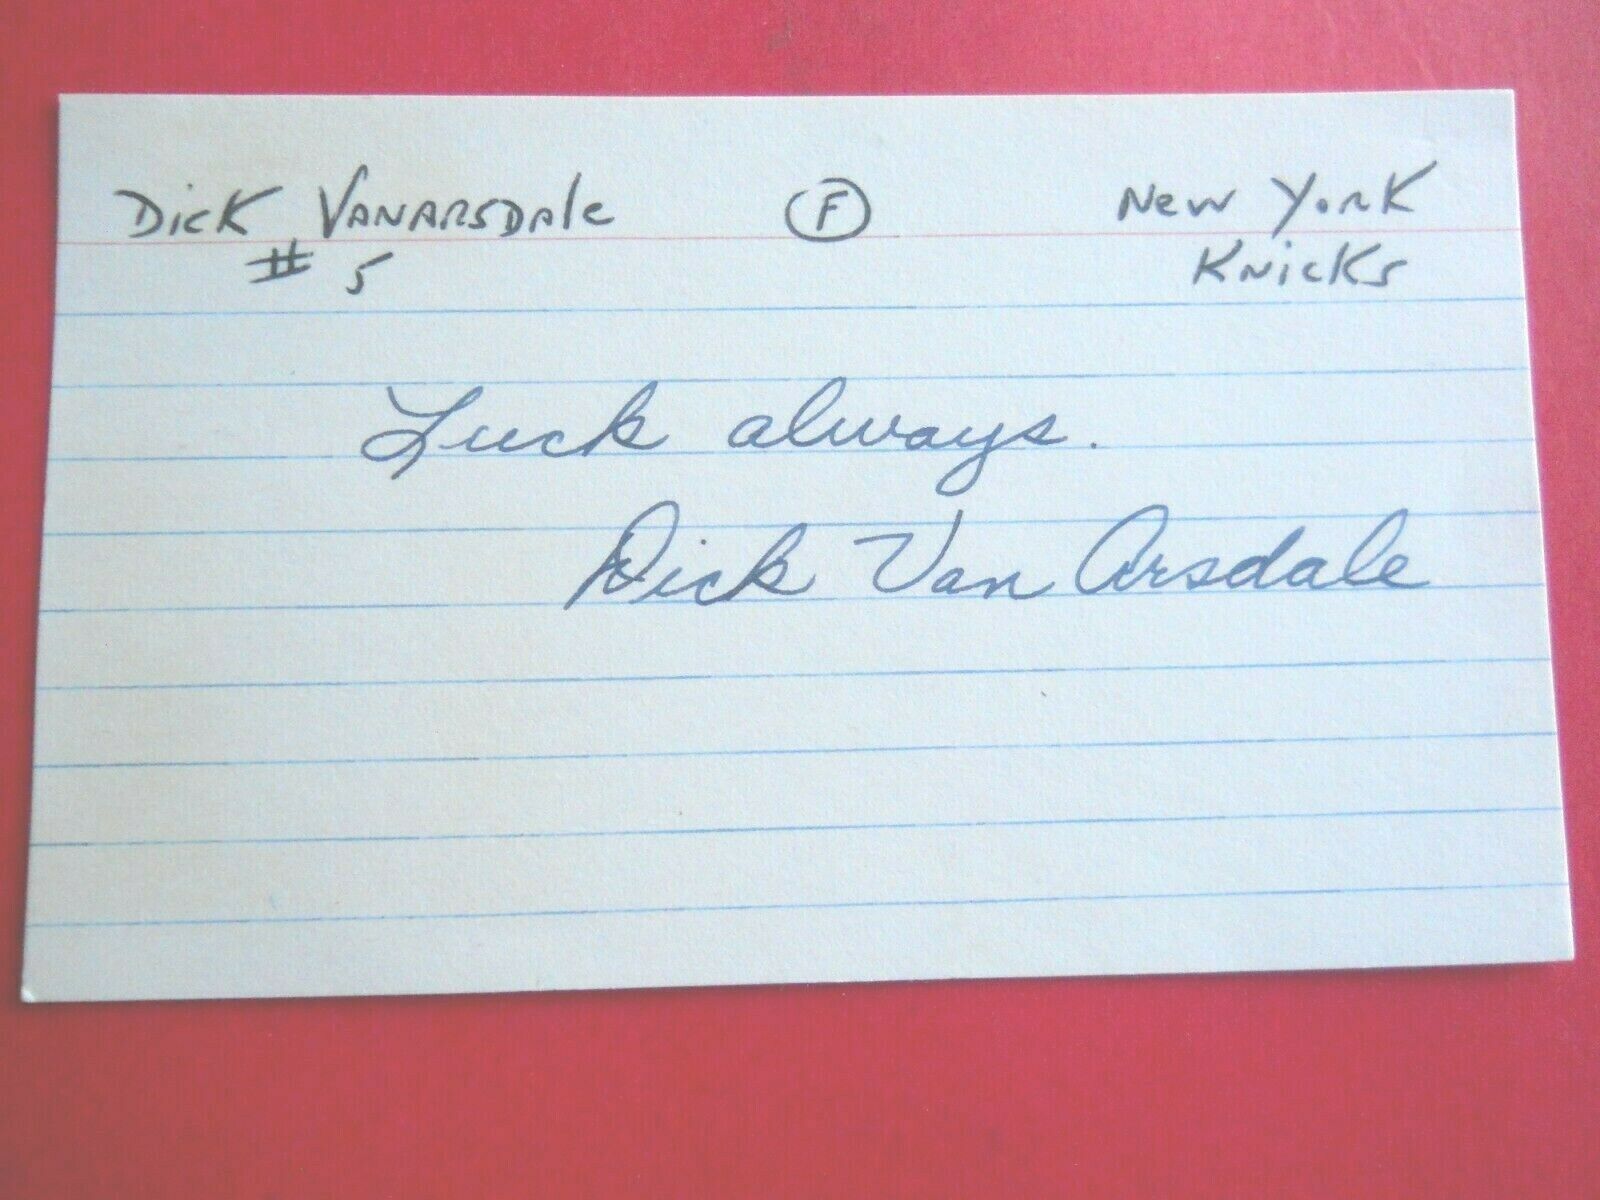 Dick VanArsdale Ⓕ New York
# 5 Knicks
Luck always.
Dick Van Arsdale